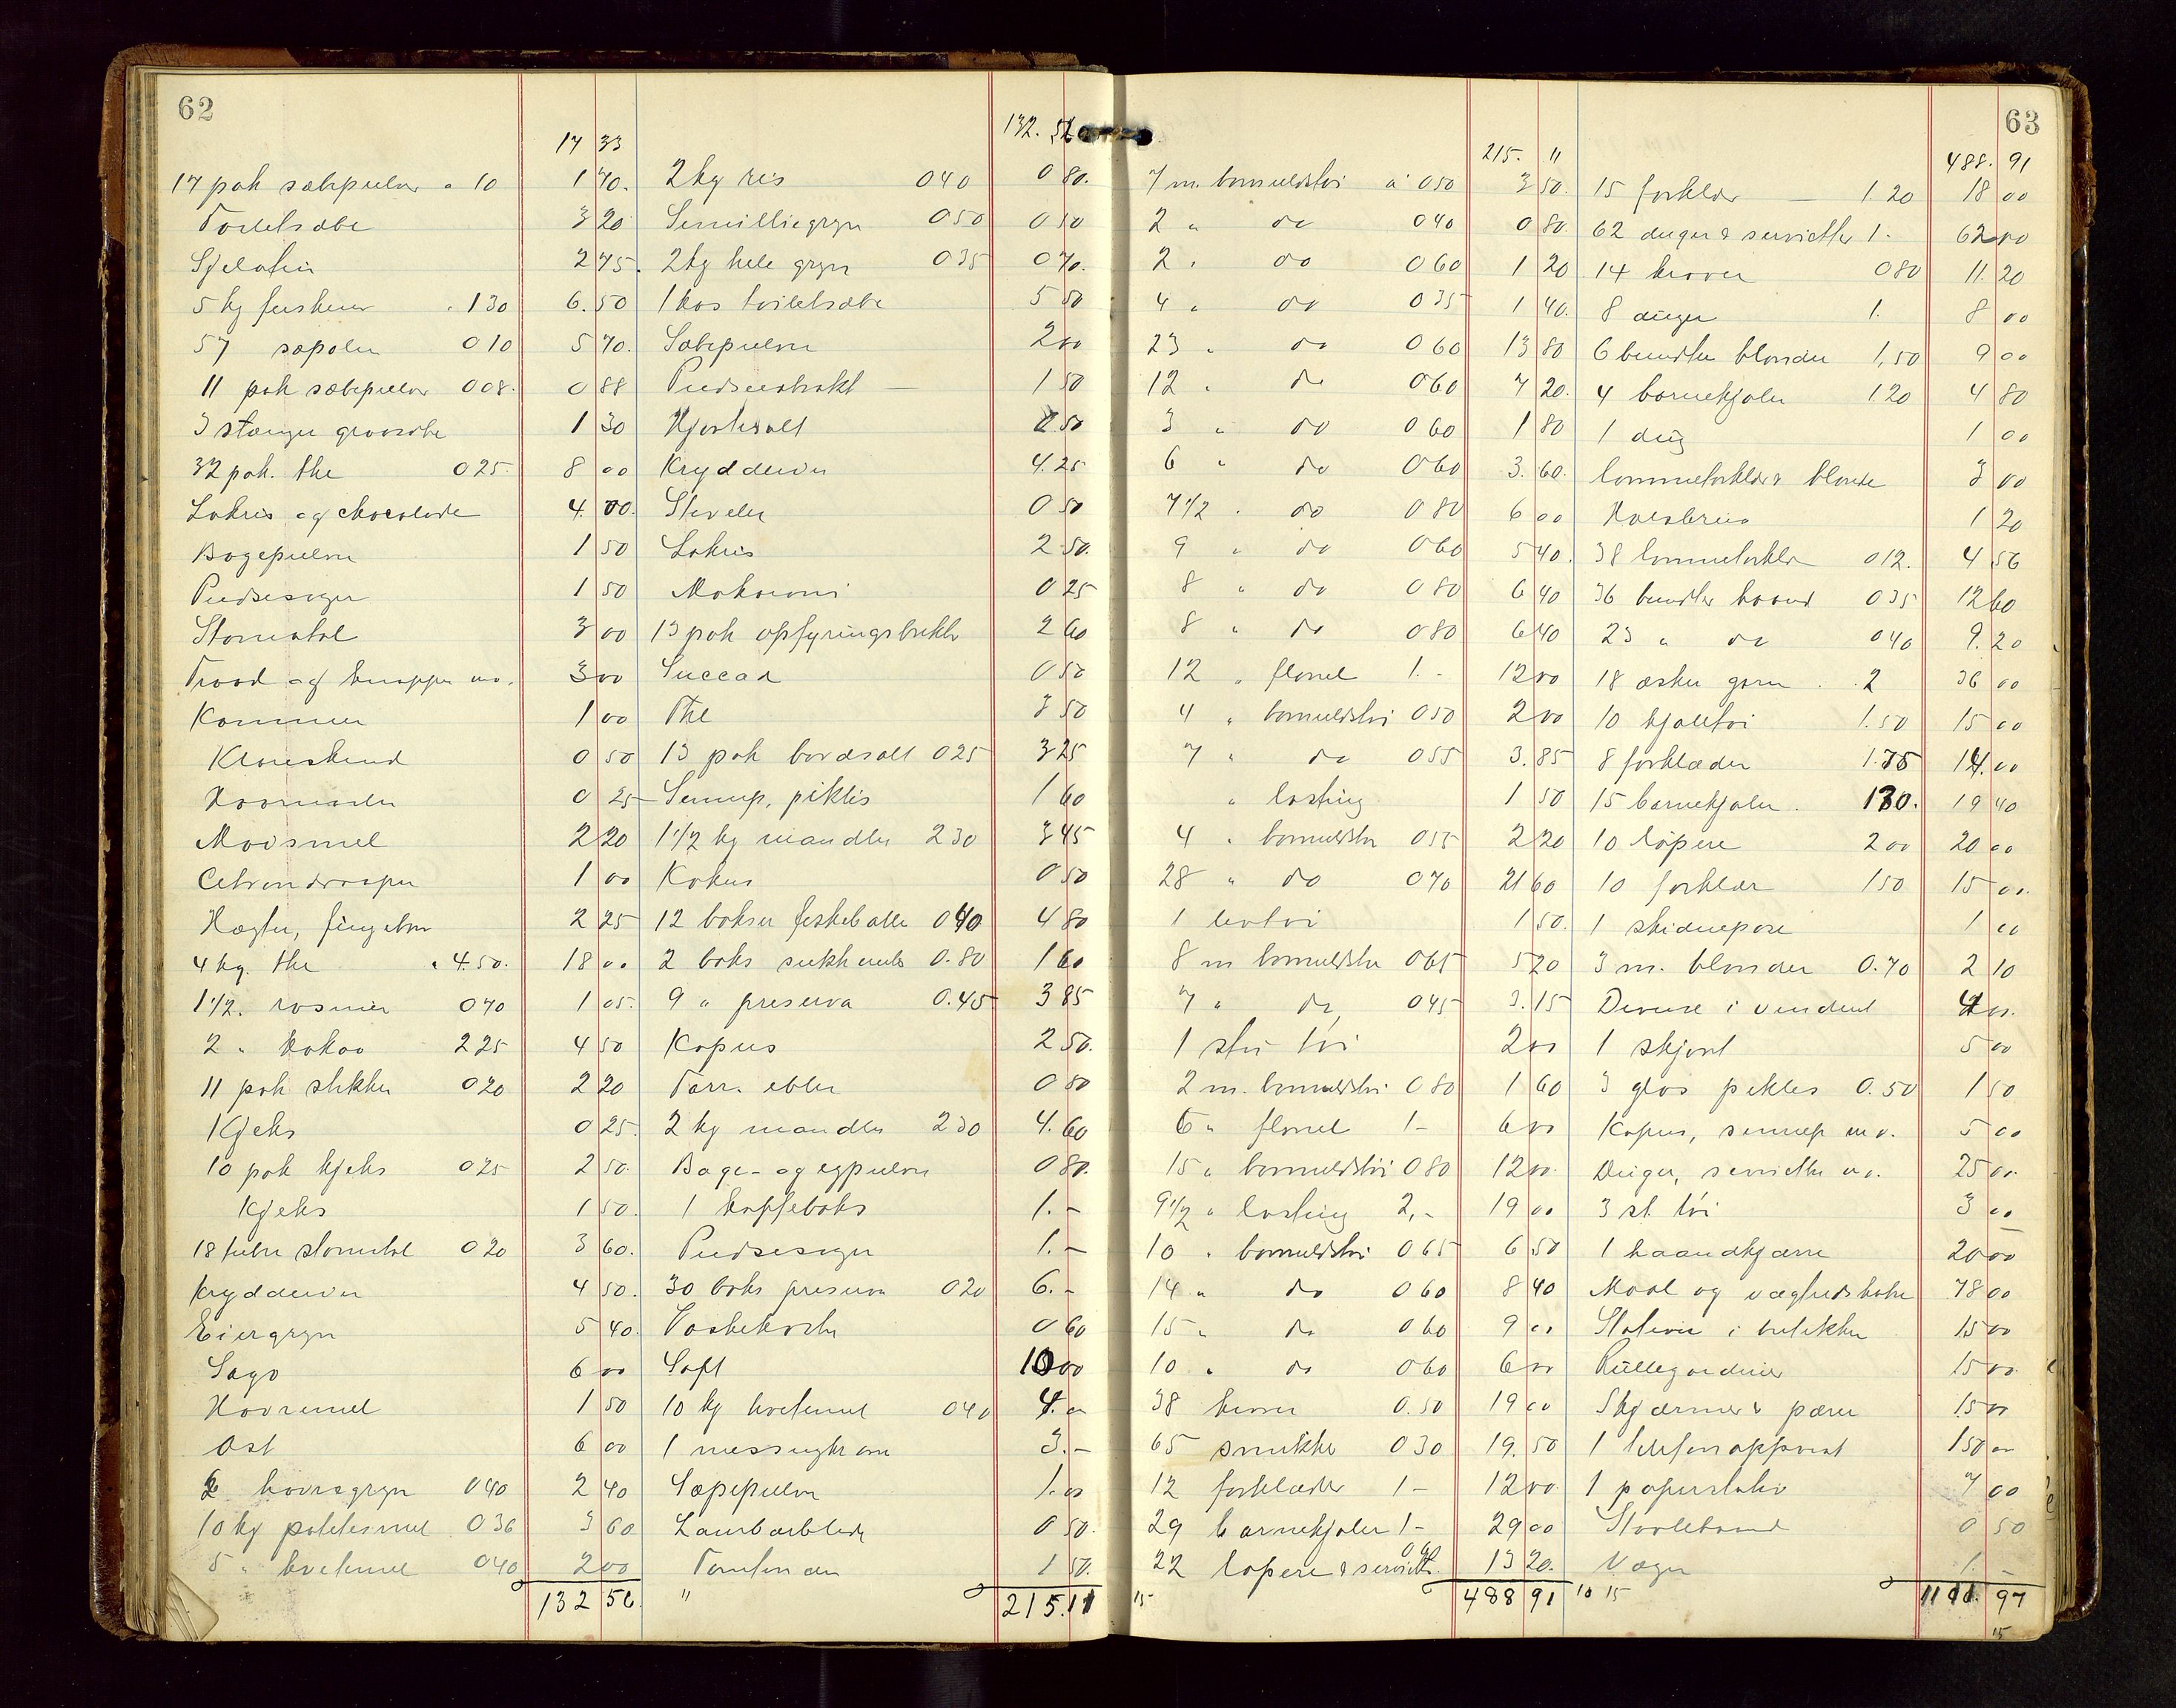 62
17 33
17 pak sæbepulver a 10 1 70.
Toiletsæbe 3 20
Gjelatin 2 75.
5 kg ferskener " 1 30 6.50
57 sapolin 0 10 5 70.
11 pak sæbepulver 0 08. 0 88
3 stænger grønsæbe 1 30
32 pak. the 0 25. 8 00
Lakris og chocolade 4.00.
Bagepulver 1 50
Pudsesager 1 50
Stonetol 3 00
Traad og knapper m.v. 3 00
Kommen 1 00
Kloreskind 0 50
Haarnaaler 0 25
Maismel 2 20
Citrondraaper 1 00
Hægter, fingerbør 2 25
4 kg. the " 4.50. 18 00
1 1/2. rosiner 0 70 1 05.
2 " kakao 2 25 4 50
11 pak stikker 0 20 2 20
Kjeks 0 25.
10 pak kjeks 0 25 2 50.
Kjeks 1 50.
18 tuber stonetol 0 20 3 60.
Krydderier 4 50.
Eiergryn 5 40.
Sago 6 00
Havremel 1 50
Ost 6 00
6 havregryn 0 40 2 40
10 kg potetesmel 0 36 3 60
5 " hvetemel 0 40 2 00
132 56.
132. 56
2 kg ris 0 40 0 80.
Semulliegryn 0 50 0 50
2 kg hele gryn 0 35 0 70.
1 kas toiletsæbe 5 50
Sæbepulver 2 00
Pudseextrakt — 1 50
Hjortesalt 2 50
Krydderier 4.25
Stivelse 0 50
Lakris 2 50.
Makaroni 0 25
13 pak opfyringsbrikker 2 60
Succad 0 50
The 3 50
13 pak bordsalt 0 25 3 25
Sennep, pikles 1 60
1 1/2 kg mandler 2 30 3 45
Kokus 0 50
12 bokser fiskeballer 0 40 4 80
2 boks sukkererter 0.80 1 60
9 " preserva 0.45 3 85
Kapers 2 50.
Tørr. ebler 0 80
2 kg mandler 2 30 4.60
Bage- og egpulver 0 80.
1 kaffeboks 1.-
Pudsesager 1.-
30 boks preserva 0 20 6.-
Vaskekoster 0 60
Saft 10 00
10 kg hvetemel 0 40 4.00
1 messingkran 3.-
Sæpepulver 1.00
Laurbærblade 0 50.
Tomtønder 1 50.
" 215.11
63
215. 11
7 m. bomuldstøi à 0 50 3 50.
2 " do 0 40 0 80.
2 " do 0 60 1 20
4 " do 0 35 1 40.
23 " do 0 60 13 80
12 " do 0 60 7 20.
3 " do 0 60 1 80
6 " do 0 60 3.60.
7 1/2 " do 0 80 6 00
9 " do 0 60 5 40.
8 " do 0 80 6 40
8 " do 0 80 6 40
12 " flonel 1.- 12 00
4 " bomuldstøi 0 50 2 00
7 " do 0 55 3.85
" lasting 1 50
4 " bomuldstøi 0 55 2 20
28 " do 0 70 21 60
1 lertøi 1 50.
8 m bomuldstøi 0 65 5 20
7 " do 0 45 3.15
1 stu tøi 2 00
2 m. bomuldstøi 0 80 1 60
6 " flonel 1- 6 00
15 " bomuldstøi 0 80 12 00.
9 1/2 " lasting 2,- 19 00
10 " bomuldstøi 0 65 6 50
14 " do 0 60 8 40
15 " do 0 60 9 00
10 " do 0 60 6 00
38 huver 0.50 19 00
65 smukker 0 30 19.50
12 forklæder 1- 12 00.
29 barnekjoler 1- 29 00
22 løpere & servietter 0 60 13 20.
15 488 91
488. 91
15 forklær — 1 20 18 00
62 duger & servietter 1- 62 00
14 kraver 0 80 11.20
8 duger 1. 8 00
6 bundter blonder 1,50 9 00
4 barnekjoler 1 20 4 80
1 dug 1 00
lommetørklær & blonde 3 00
Halsbrus 1 20
38 lommetørklær 0 12. 4 56
36 bundter baand 0 35 12 60
23 " do 0 40 9.20
18 æsker garn . 2 36 00
10 kjoletøi 1.50 15 00
8 forklæder 1.75 14.00
15 barnekjoler. 1 30. 19 40
10 løpere 2 00 20 00
10 forklær 1 50 15 00.
1 skiduepose 1 00
3 m. blonder 0.70 2 10
Diverse i vinduet 4 00.
1 skjort 5 00
3 glas pikles 0.50 1 50
Kapers, sennep m.v. 5 00
Duger, servietter m.v. 25 00
3 st. tøi 3 00
1 haandkjærre 20 00
Maal og vegtredskaber 78 00
Stativer i butikken 15 00
Rullegardiner 15 00.
Skjærmer & pærer 15 00
1 telefonapparat 150 00
1 papirstativ 7 00
Staalebaand 0 50
Væger 1.-
10 15 1101. 97
15